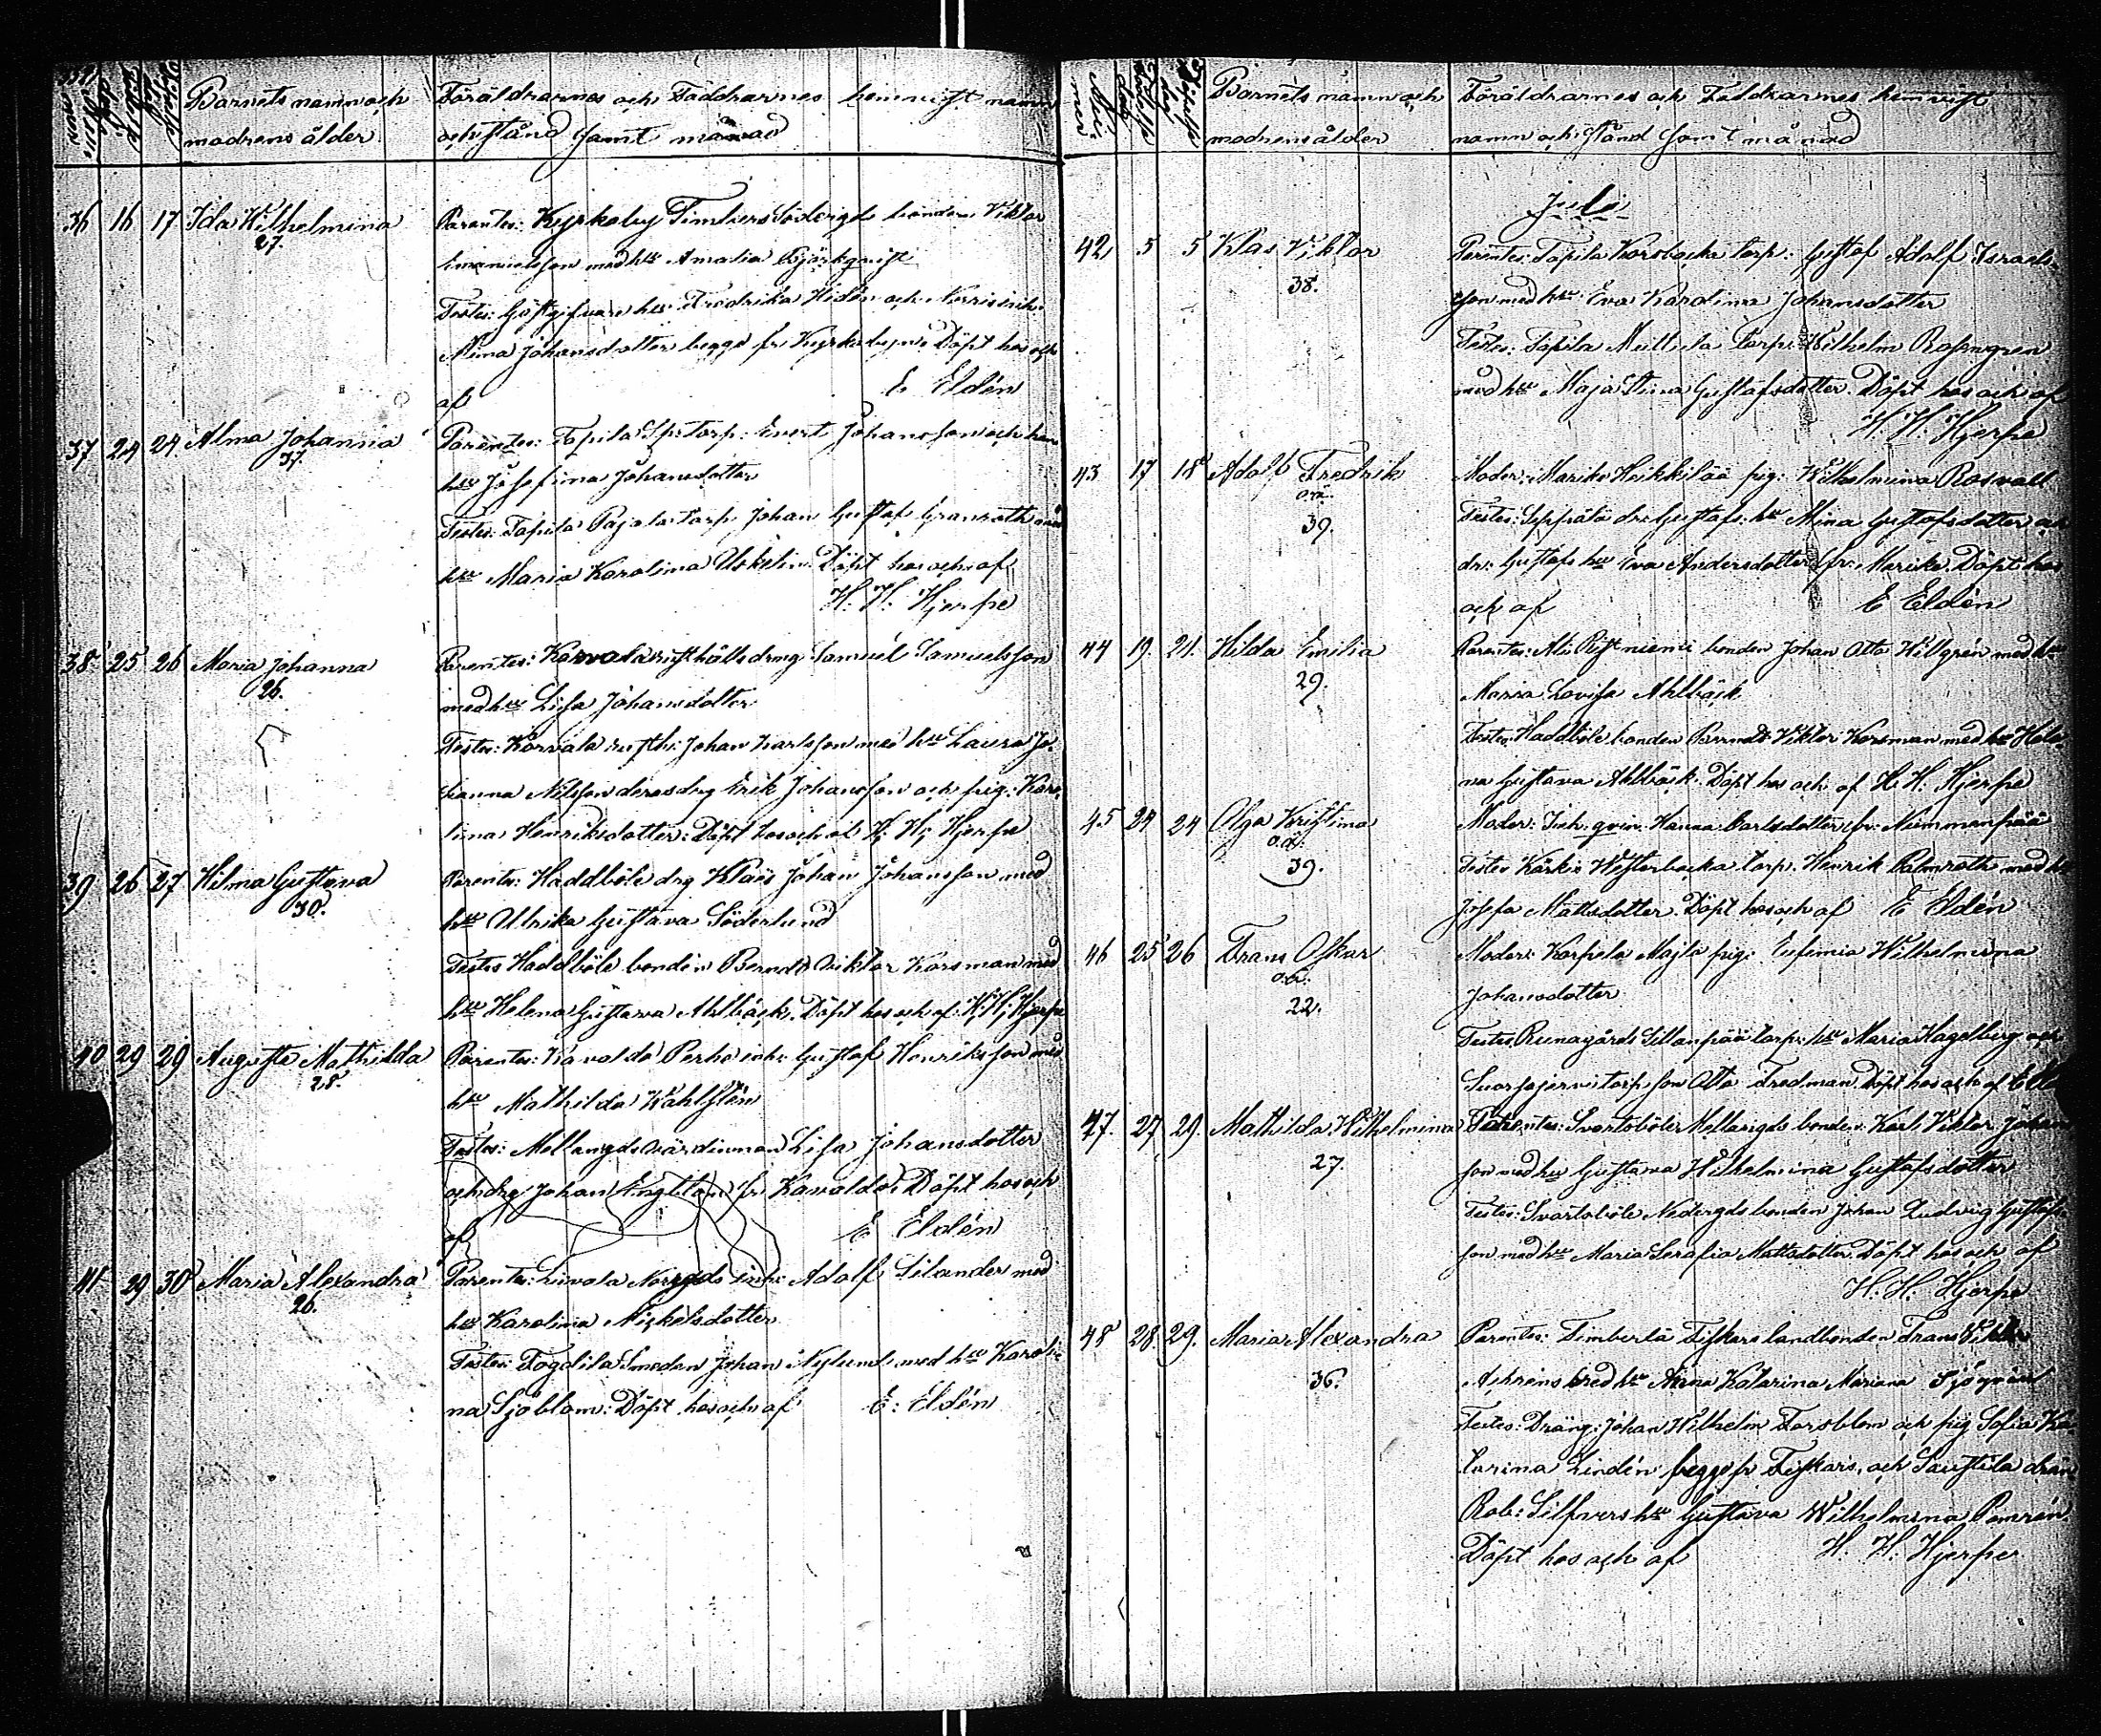 Barnets namn och
modrens ålder
Föräldrarnes och Faddrarnes hemvist namn
och stånd samt månad
36 16 17 Ida Wilhelmina
27.
Parentes: Kyrkoby Timbers bonden Viktor
Emanuelsson med h:u Amalia Björkqvist
Testes: Göstgifvare h:u Fredrika Hidén och
Mina Johansdotter begge fr Kyrkoby Döpt hos och
af E Eldén
37 24 24 Alma Johanna
37.
Parentes: Topila torp: Evert Johansson och
h:u Josefina Johansdotter
Testes: Topila Pajala torp. Johan Gustaf Granroth med
h:u Maria Karolina Döpt hos och af
H: H: Hjerpe
38 25 26 Maria Johanna
26.
Parentes: Korvola rusthålls drng Samuel Samuelsson
med h:u Lisa Johansdotter
Testes: Korvala rusth: Johan Karlsson med h:u Laura Jo-
hanna Nilsson deras drg Erik Johansson och pig: Karo-
lina Henriksdotter: Döpt hos och af H: H: Hjerpe
39 26 27 Hilma Gustava
30.
Parentes: Haddböle drg Klas Johan Johansson med
h:u Ulrika Gustava Söderlund
Testes Haddböle bonden Berndt Viktor Korsman med
h:u Helena Gustava Ahlbäck. Döpt hos och af H: H: Hjerpe
40 29 29 Augusta Mathilda
28.
Parentes: Kavalda Perho inh: Gustaf Henriksson med
h:u Mathilda Wahlstén
Testes: Mellangds värdinnan Lisa Johansdotter
och drg Johan Englund fr Kavalda: Döpt hos och
af E Eldén
41 29 30 Maria Alexandra
26.
Parentes: Livola Norrgds inh: Adolf Silander med
h:u Karolina Mickelsdotter
Testes: Fogdila Smeden Johan Nylund med h:u Karoli-
na Sjöblom: Döpt hos och af E: Eldén
Barnets namn och
modrens ålder
Föräldrarnes och Faddrarnes hemvist
namn och stånd samt månad
Juli
42 5 5 Klas Viktor
38.
Parentes: Topila Korsbacka torp: Gustaf Adolf Israels-
son med h:u Eva Karolina Johansdotter
Testes: Topila torp: Wilhelm Rosengren
med h:u Maja Stina Gustafsdotter. Döpt hos och af
H. H. Hjerpe
43 17 18 Adolf Fredrik
o.ä.
39.
Moder: Marike Heikkilää pig: Wilhelmina Rosvall
Testes: Seppälä dr: Gustafs: h:u Mina Gustafsdotter och
dr: Gustafs h:u Eva Andersdotter fr: Marike. Döpt hos
och af E Eldén
44 19. 21. Hilda Emilia
29.
Parentes: Ali Ristniemi bonden Johan Otto Hillgrén med h:u
Maria Lovisa Ahlbäck
Testes: Haddböle bonden Berndt Viktor Korsman med h:u Hele-
na Gustava Ahlbäck. Döpt hos och af H. H. Hjerpe
45 24 24 Olga Kristina
o.ä.
39.
Moder: Inh. qvin: Hanna Carlsdotter fr: Nummenpää
Testes Kärkis Westerbacka torp. Henrik Palmroth med h:u
Josefa Mattsdotter. Döpt hos och af E Eldén
46 25 26 Frans Oskar
o.ä.
22.
Moder: Korpela Majla pig: Eufemia Wilhelmina
Johansdotter
Testes Runagårds Sillanpää torp: h:u Maria Hagelberg och
Suorsajervi torp. son Otto Fredman. Döpt hos och af E
47. 27 29. Mathilda Wilhelmina
27.
Parentes: Svartböle Mellangds bonden Karl Viktor Johans-
son med h:u Gustava Wilhelmina Gustafsdotter
Testes: Svartböle Nedergds bonden Johan Ludvig Gustafs-
son med h:u Maria Serafia Mattsdotter. Döpt hos och af
H. H. Hjerpe
48 28. 29. Maria Alexandra
36.
Parentes: Timberlä Fiskars landbonden Frans Viktor
med h:u Anna Katarina Mariana Sjögren
Testes: Dräng: Johan Wilhelm Forsblom och pig Sofia Ka-
tarina Lindén begge fr Fiskars, och Saustila drän
Rob: Silfvers h:u Gustava Wilhelmina
Döpt hos och af H. H. Hjerpe